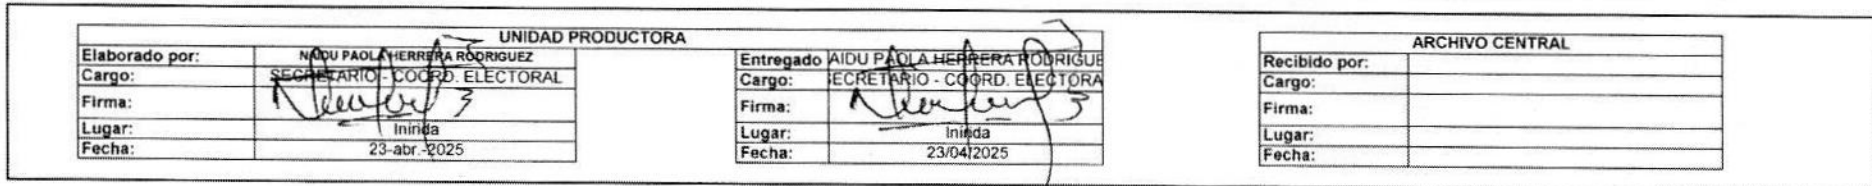 UNIDAD PRODUCTORA
Elaborado por: NAIDU PAOLA HERRERA RODRIGUEZ
Cargo: SECRETARIO - COORD. ELECTORAL
Firma:
Lugar: Inírida
Fecha: 23-abr.-2025
Entregado AIDU PAOLA HERRERA RODRIGUE
Cargo: ECRETARIO - COORD. ELECTORA
Firma:
Lugar: Inírida
Fecha: 23/04/2025
ARCHIVO CENTRAL
Recibido por:
Cargo:
Firma:
Lugar:
Fecha: